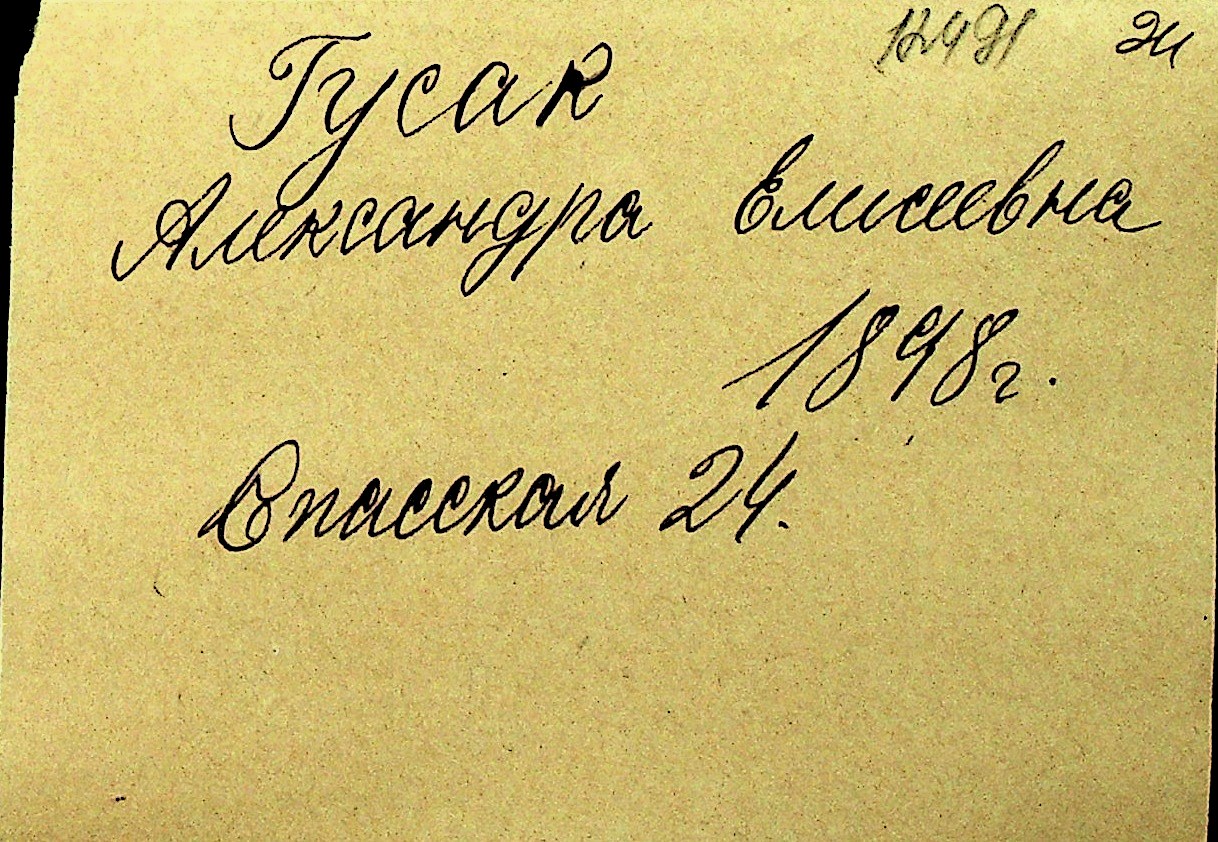 Гусак
Александра Елисеевна
1898г.
Спасская 24.